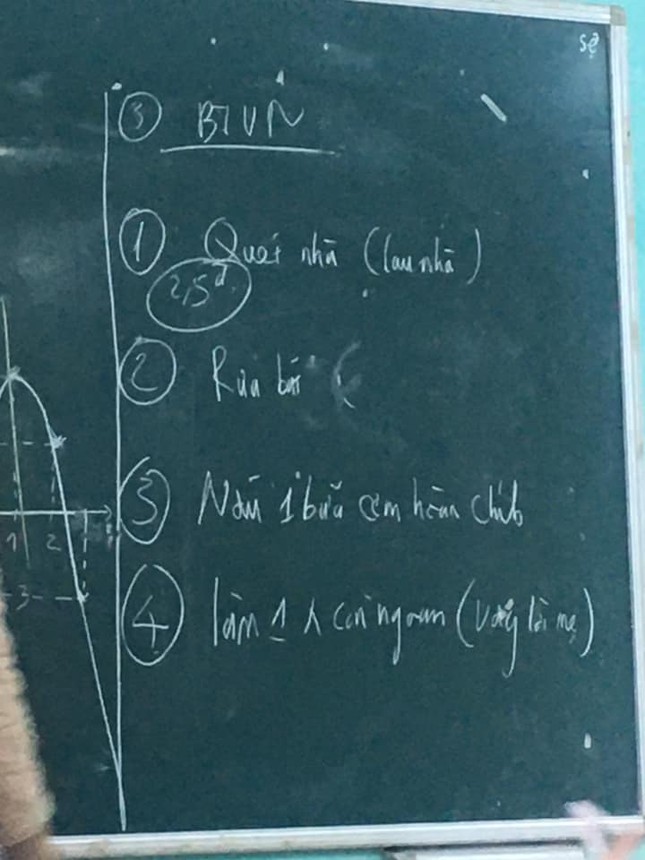 sẹ
③ BTVN
① Quét nhà (lau nhà)
2,5đ
② Rửa bát
③ Nấu 1 bữa cơm hoàn chỉnh
④ làm 1 con ngoan (vâng lời mẹ)
1 2
-3